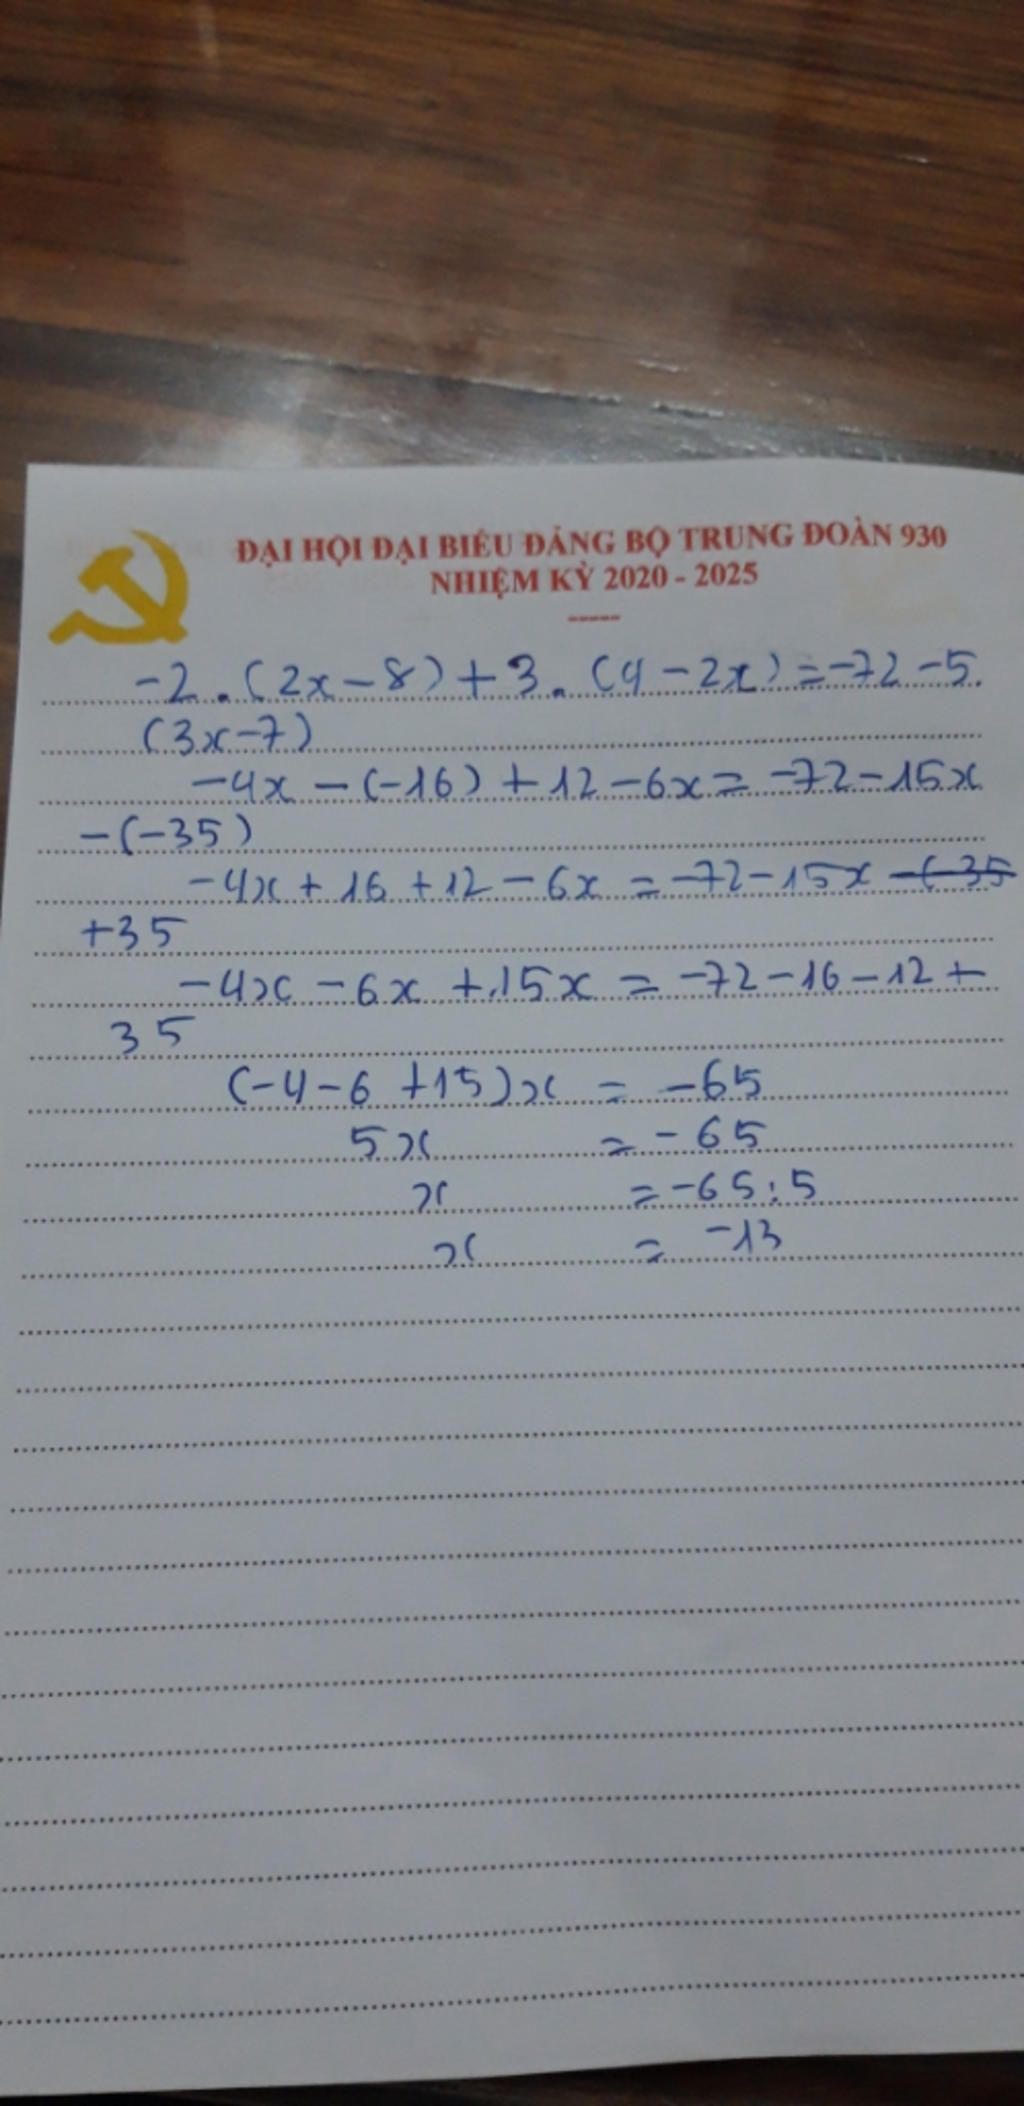 ĐẠI HỘI ĐẠI BIỂU ĐẢNG BỘ TRUNG ĐOÀN 930
NHIỆM KỲ 2020 - 2025
-2.(2x-8)+3.(4-2x)=-72-5.
(3x-7)
-4x-(-16)+12-6x=-72-15x
-(-35)
-4x+16+12-6x=-72-15x -(-35
+35
-4x-6x+15x=-72-16-12+
35
(-4-6+15)x = -65
5x = -65
x = -65:5
x = -13